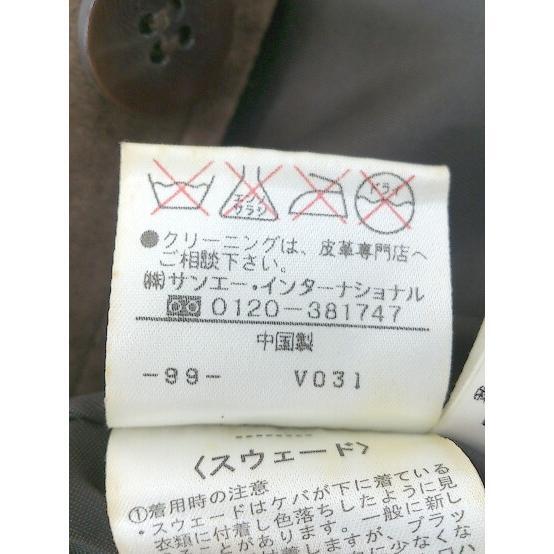 エンソ
サラシ
ドライ
●クリーニングは、皮革専門店へ
ご相談下さい。
㈱サンエー・インターナショナル
0120-381747
中国製
-99- V031
〈スウェード〉
①着用時の注意
・スウェードはケバが下に着ている
衣類に付着し色落ちしたように見
えることがあります。一般に新し